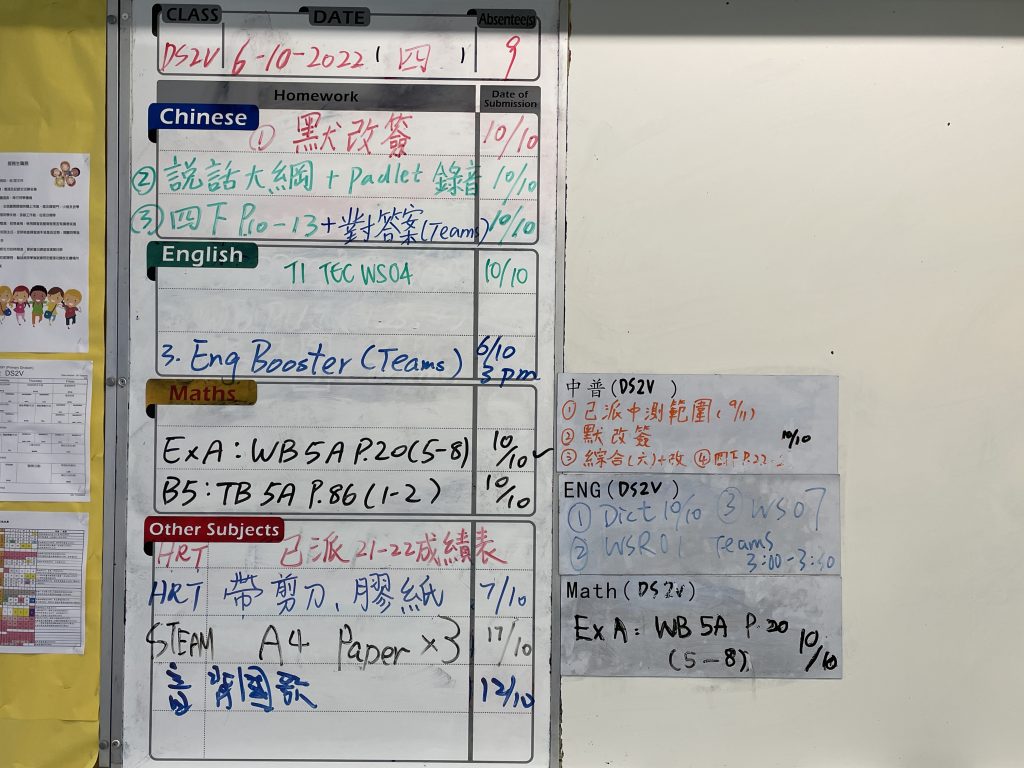 CLASS DATE Absentee(s)
DS2V 6-10-2022 (四) 9
Homework Date of Submission
Chinese
① 默改簽 10/10
② 説話大綱 + padlet 錄音 10/10
③ 四下 P.10-13 + 對答案 (Teams) 10/10
English
TI TEC WS04 10/10
3. Eng Booster (Teams) 6/10 3 pm
Maths
ExA: WB 5A P.20 (5-8) 10/10
B5: TB 5A P.86 (1-2) 10/10
Other Subjects
HRT 已派 21-22成績表
HRT 帶剪刀、膠紙 7/10
STEAM A4 Paper ×3 17/10
音 背國歌 12/10
中普(DS2V)
① 已派中測範圍 (9/11)
② 默改簽 10/10
③ 綜合(六)+改 ④四下P.22-
ENG (DS2V)
① Dict 10/10 ③ WS07
② WSR01 Teams
3:00-3:30
Math (DS2V)
Ex A: WB 5A P.20 10/10
(5-8)
DS2V